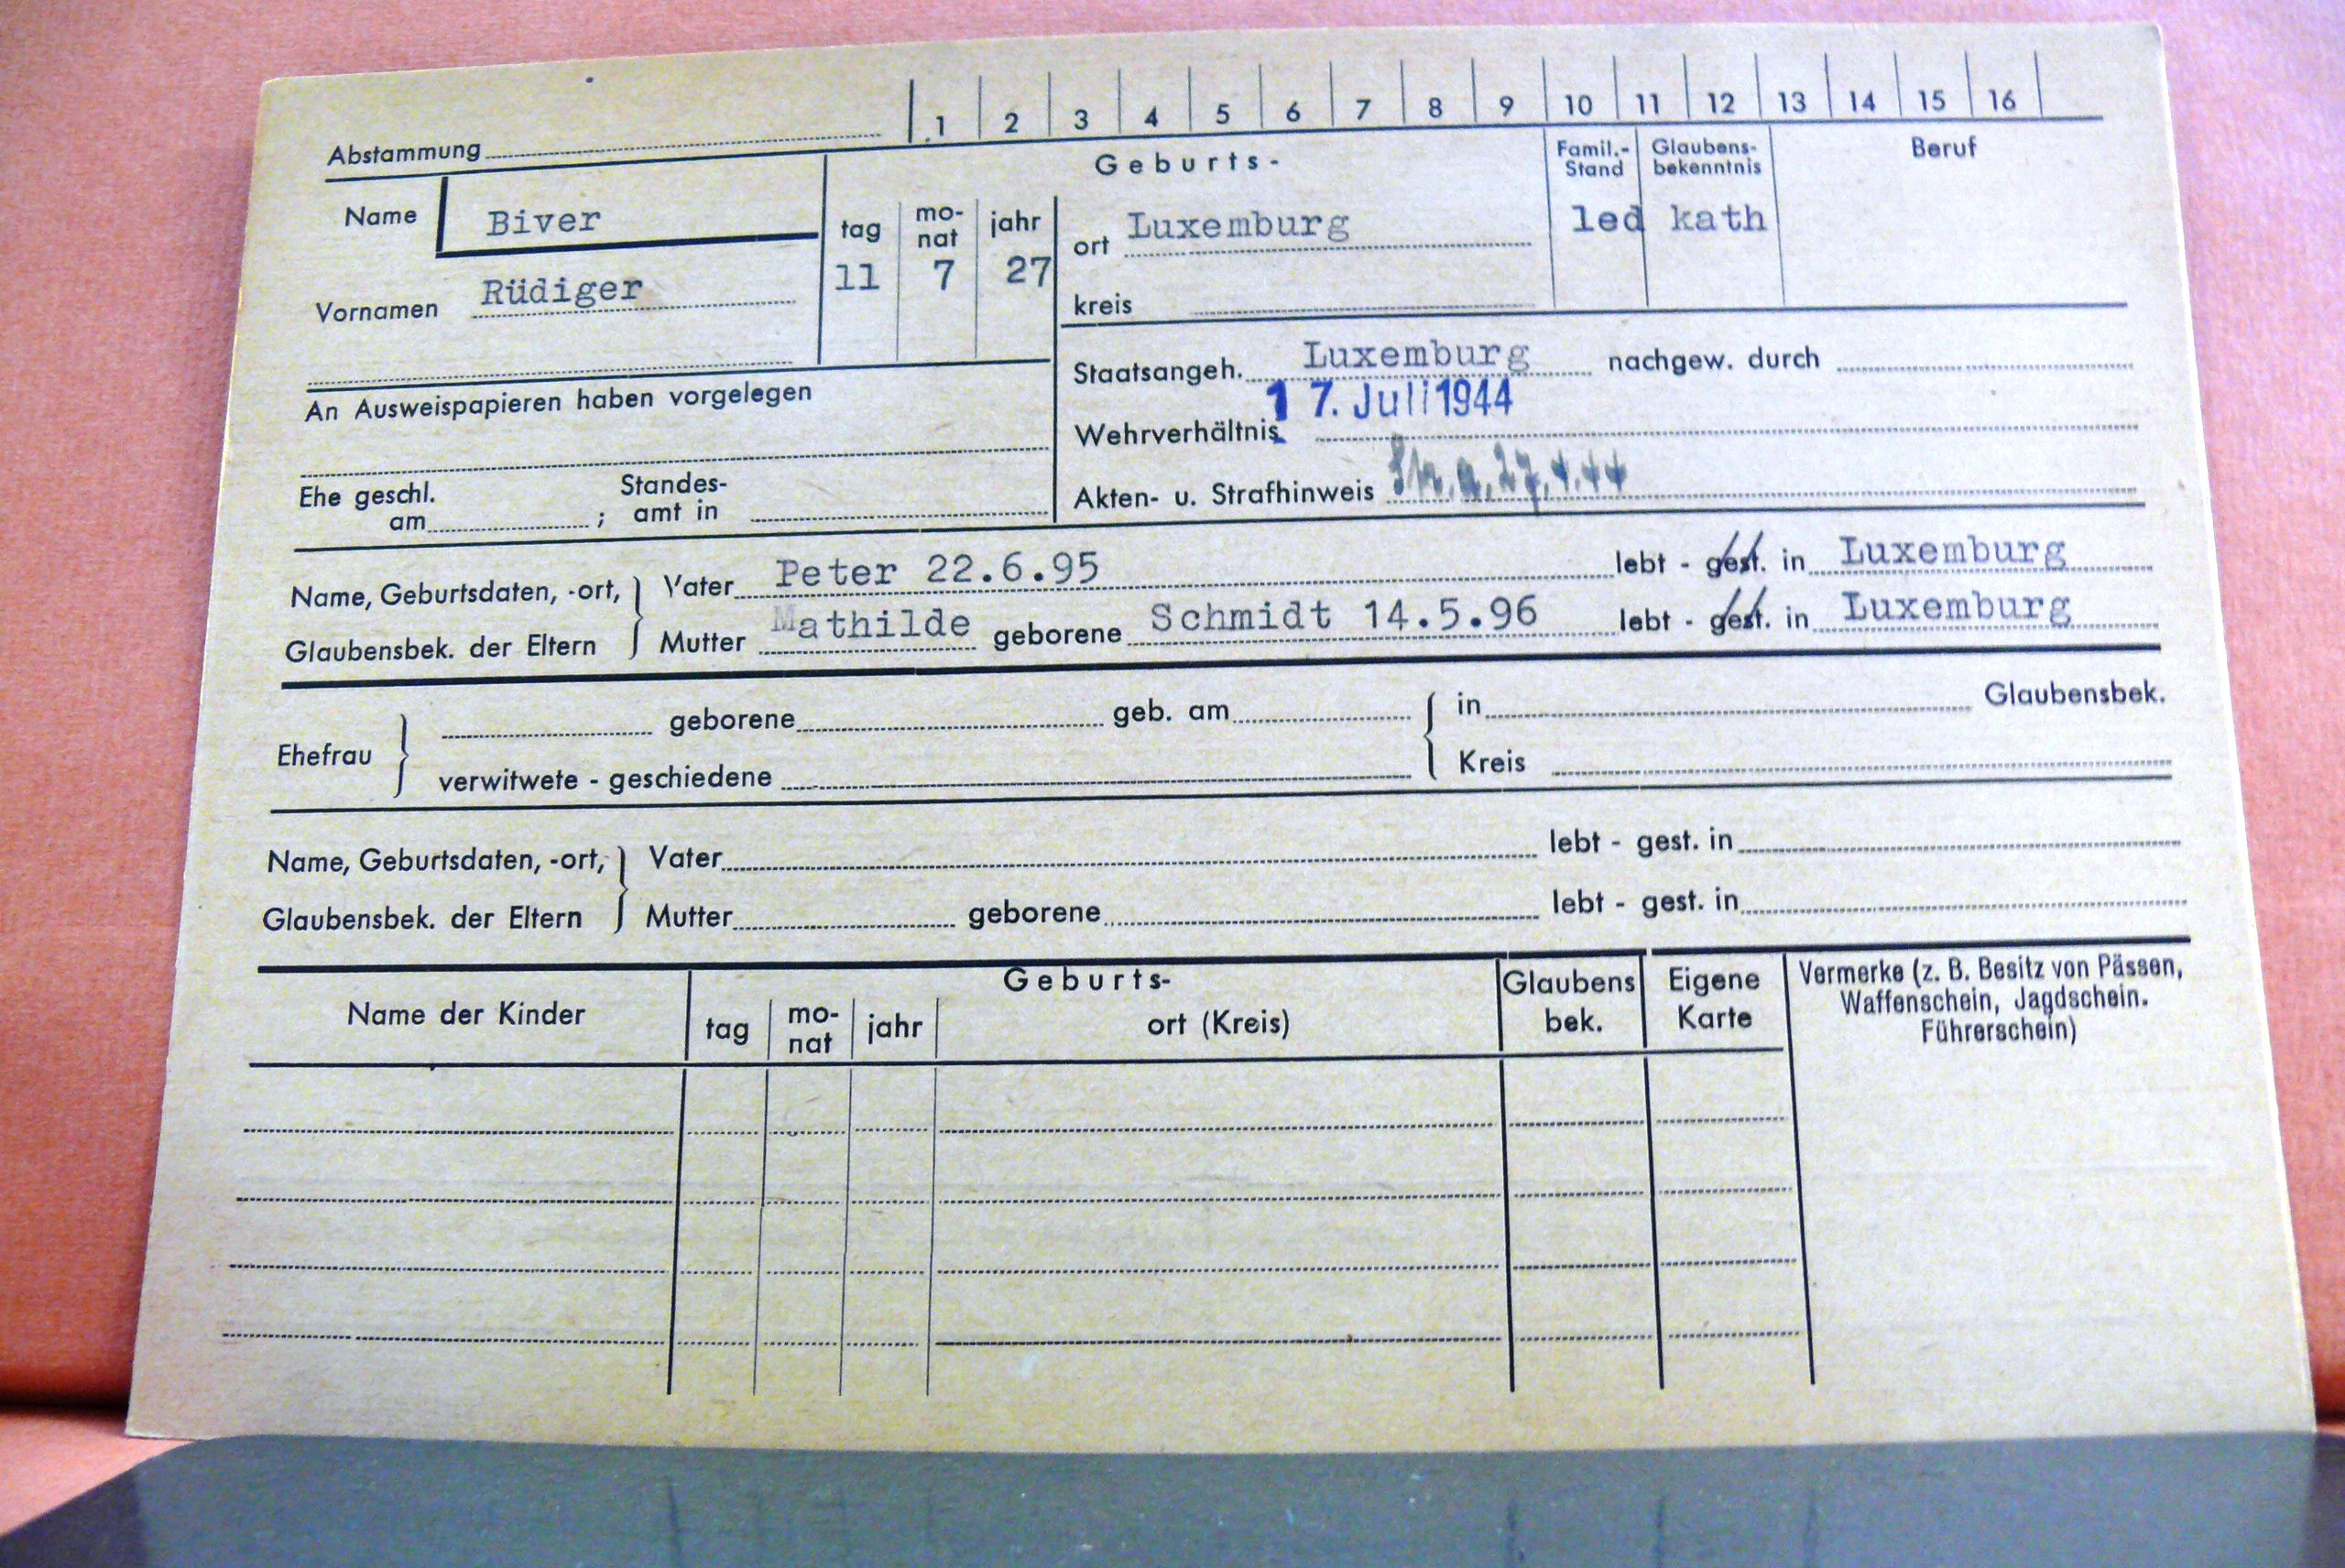 Abstammung 1 2 3 4 5 6 7 8 9 10 11 12 13 14 15 16
Geburts- Famil.-Stand Glaubens-bekenntnis Beruf
Name Biver tag mo-nat jahr ort Luxemburg led kath
Vornamen Rüdiger 11 7 27 kreis
Staatsangeh. Luxemburg nachgew. durch
An Ausweispapieren haben vorgelegen
17. Juli 1944
Wehrverhältnis
Ehe geschl. am ; Standes-amt in
Akten- u. Strafhinweis 27.4.44
Name, Geburtsdaten, -ort, Vater Peter 22.6.95 lebt - gest. in Luxemburg
Glaubensbek. der Eltern Mutter Mathilde geborene Schmidt 14.5.96 lebt - gest. in Luxemburg
Ehefrau geborene geb. am in Glaubensbek.
verwitwete - geschiedene Kreis
Name, Geburtsdaten, -ort, Vater lebt - gest. in
Glaubensbek. der Eltern Mutter geborene lebt - gest. in
Name der Kinder Geburts- Glaubens bek. Eigene Karte Vermerke (z. B. Besitz von Pässen,
tag mo-nat jahr ort (Kreis) Waffenschein, Jagdschein.
Führerschein)